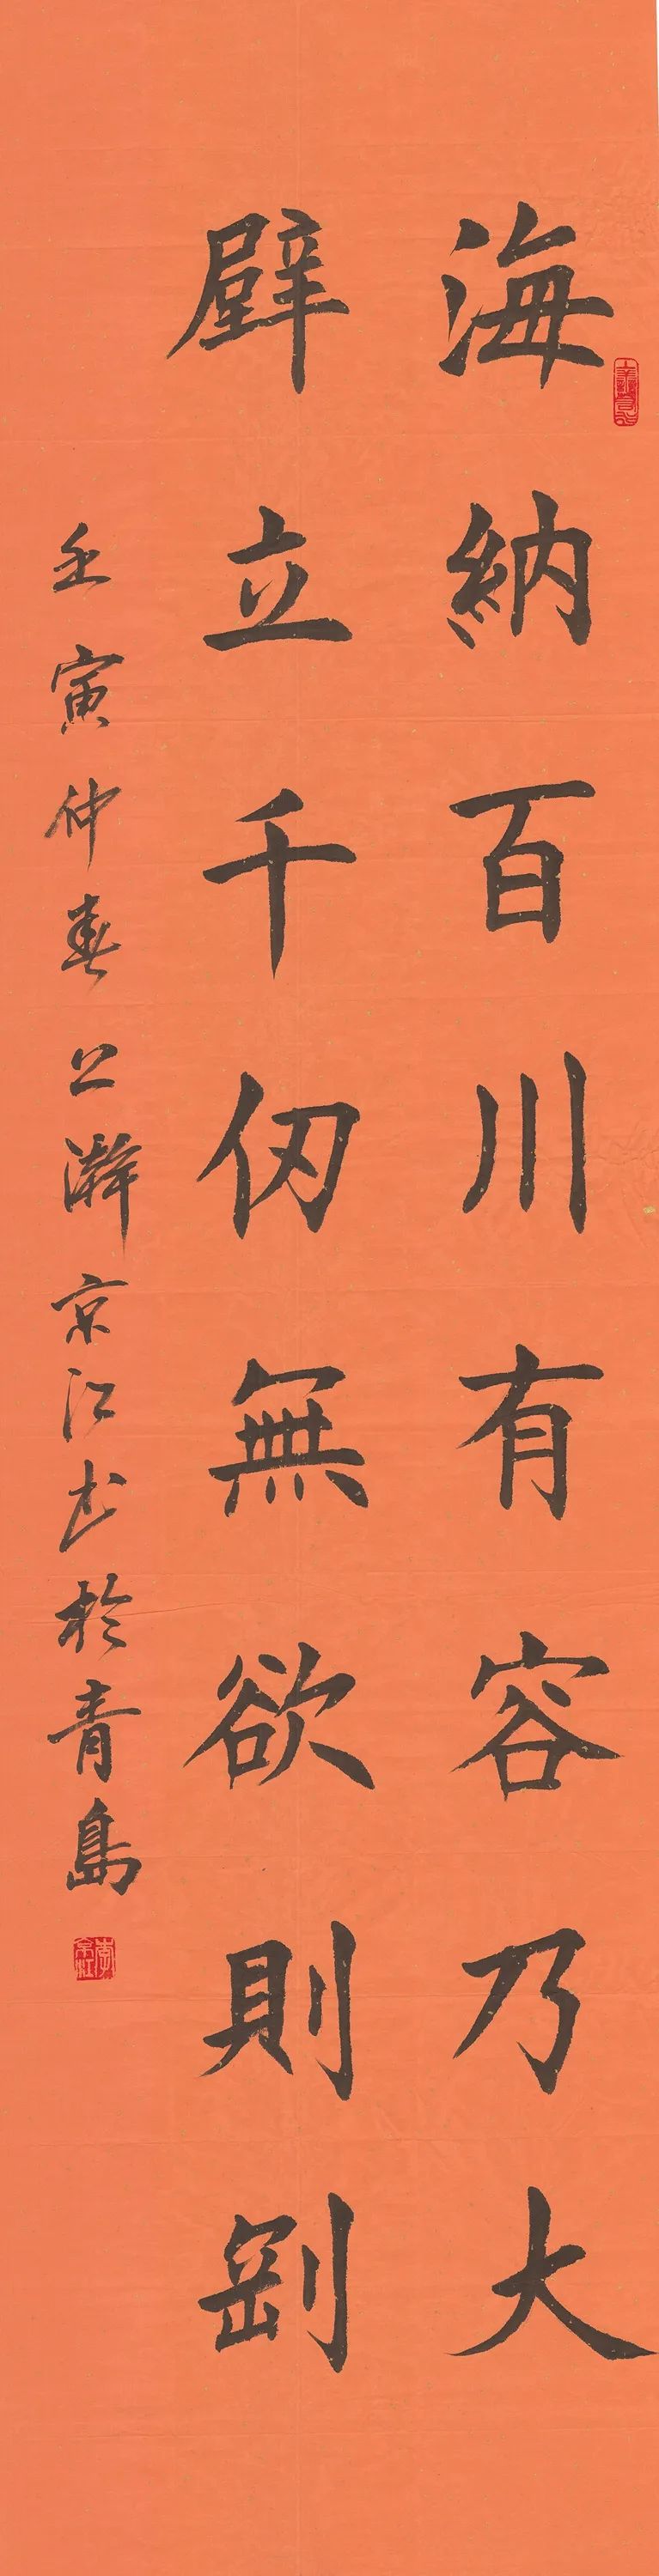 海納百川有容乃大
壁立千仞無欲則剛
壬寅仲春公瀚京江书於青島
李京江